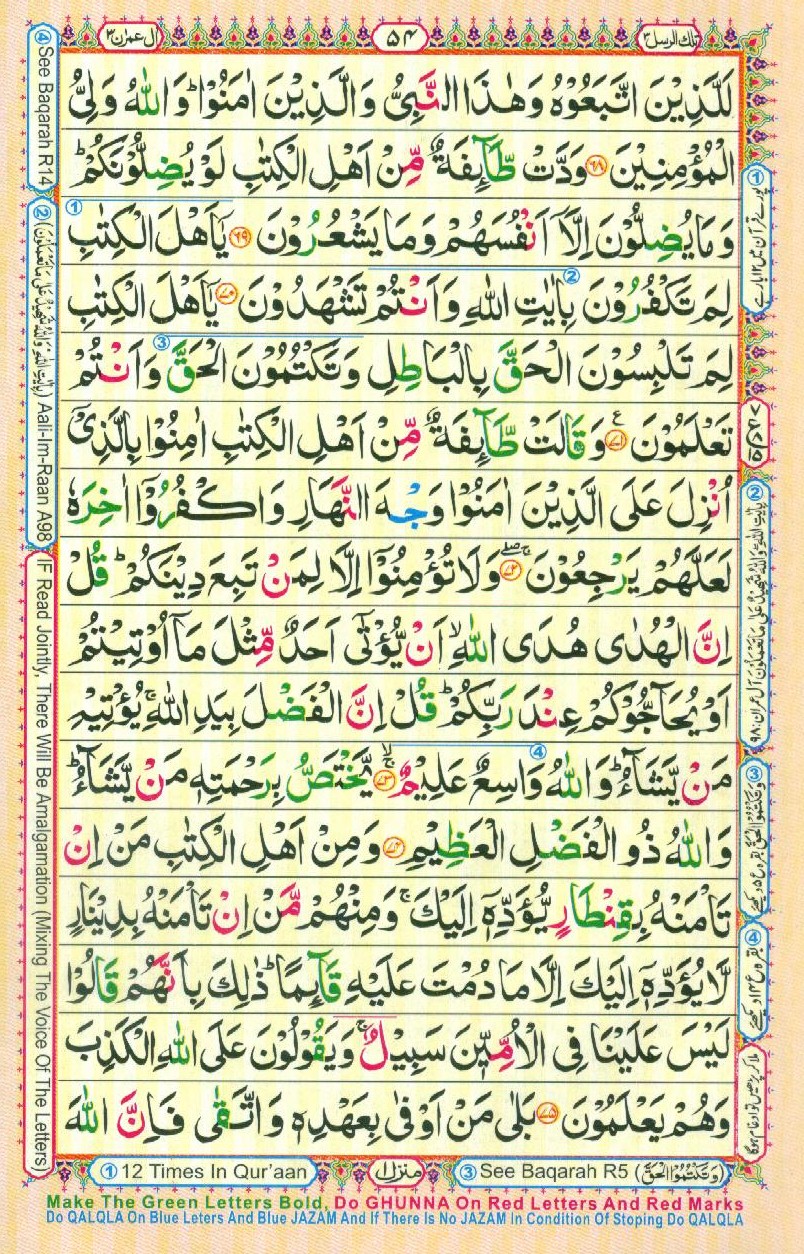 تلك الرسل ٣
٥٤
ال عمرٰن ٣
لَلَّذِيْنَ اتَّبَعُوْهُ وَهٰذَا النَّبِىُّ وَالَّذِيْنَ اٰمَنُوْاؕ وَاللّٰهُ وَلِىُّ
الْمُؤْمِنِيْنَ ۶۸ وَدَّتْ طَّآٮِٕفَةٌ مِّنْ اَهْلِ الْكِتٰبِ لَوْ يُضِلُّوْنَكُمْؕ
وَمَا يُضِلُّوْنَ اِلَّاۤ اَنْفُسَهُمْ وَمَا يَشْعُرُوْنَ ۶۹ يٰۤاَهْلَ الْكِتٰبِ
لِمَ تَكْفُرُوْنَ بِاٰيٰتِ اللّٰهِ وَاَنْتُمْ تَشْهَدُوْنَ ۷۰ يٰۤاَهْلَ الْكِتٰبِ
لِمَ تَلْبِسُوْنَ الْحَقَّ بِالْبَاطِلِ وَتَكْتُمُوْنَ الْحَقَّ وَاَنْتُمْ
تَعْلَمُوْنَ ۷۱ ع وَقَالَتْ طَّآٮِٕفَةٌ مِّنْ اَهْلِ الْكِتٰبِ اٰمِنُوْا بِالَّذِىْۤ
اُنْزِلَ عَلَى الَّذِيْنَ اٰمَنُوْا وَجْهَ النَّهَارِ وَاكْفُرُوْۤا اٰخِرَهٗ
لَعَلَّهُمْ يَرْجِعُوْنَ ۷۲ وَلَا تُؤْمِنُوْۤا اِلَّا لِمَنْ تَبِعَ دِيْنَكُمْؕ قُلْ
اِنَّ الْهُدٰى هُدَى اللّٰهِۙ اَنْ يُّؤْتٰٓى اَحَدٌ مِّثْلَ مَاۤ اُوْتِيْتُمْ
اَوْ يُحَآجُّوْكُمْ عِنْدَ رَبِّكُمْؕ قُلْ اِنَّ الْفَضْلَ بِيَدِ اللّٰهِۚ يُؤْتِيْهِ
مَنْ يَّشَآءُؕ وَاللّٰهُ وَاسِعٌ عَلِيْمٌ ۷۳ يَّخْتَصُّ بِرَحْمَتِهٖ مَنْ يَّشَآءُؕ
وَاللّٰهُ ذُو الْفَضْلِ الْعَظِيْمِ ۷۴ وَمِنْ اَهْلِ الْكِتٰبِ مَنْ اِنْ
تَاْمَنْهُ بِقِنْطَارٍ يُّؤَدِّهٖۤ اِلَيْكَۚ وَمِنْهُمْ مَّنْ اِنْ تَاْمَنْهُ بِدِيْنَارٍ
لَّا يُؤَدِّهٖۤ اِلَيْكَ اِلَّا مَا دُمْتَ عَلَيْهِ قَآٮِٕمًاؕ ذٰلِكَ بِاَنَّهُمْ قَالُوْا
لَيْسَ عَلَيْنَا فِى الْاُمِّيّٖنَ سَبِيْلٌۚ وَيَقُوْلُوْنَ عَلَى اللّٰهِ الْكَذِبَ
وَهُمْ يَعْلَمُوْنَ ۷۵ بَلٰى مَنْ اَوْفٰى بِعَهْدِهٖ وَاتَّقٰى فَاِنَّ اللّٰهَ
① پورے قرآن میں ۱۲ بار ہے
② بِاٰيٰتِ اللّٰهِ وَاللّٰهُ شَهِيْدٌ عَلٰى مَا تَعْمَلُوْنَ آل عمران: ۹۸
③ وَتَكْتُمُوا الْحَقَّ بقره ع ۵ دیکھئے
④ بقره ع ۱۴ دیکھئے
ملا کر پڑھیں تو ادغام ہوگا
④ See Baqarah R14
② (بِاٰيٰتِ اللّٰهِ وَاللّٰهُ شَهِيْدٌ عَلٰى مَا تَعْمَلُوْنَ) Aali-Im-Raan A98
IF Read Jointly, There Will Be Amalgamation (Mixing The Voice Of The Letters)
① 12 Times In Qur'aan
منزل ١
③ See Baqarah R5 (وَتَكْتُمُوا الْحَقَّ)
Make The Green Letters Bold, Do GHUNNA On Red Letters And Red Marks
Do QALQLA On Blue Leters And Blue JAZAM And If There Is No JAZAM In Condition Of Stoping Do QALQLA